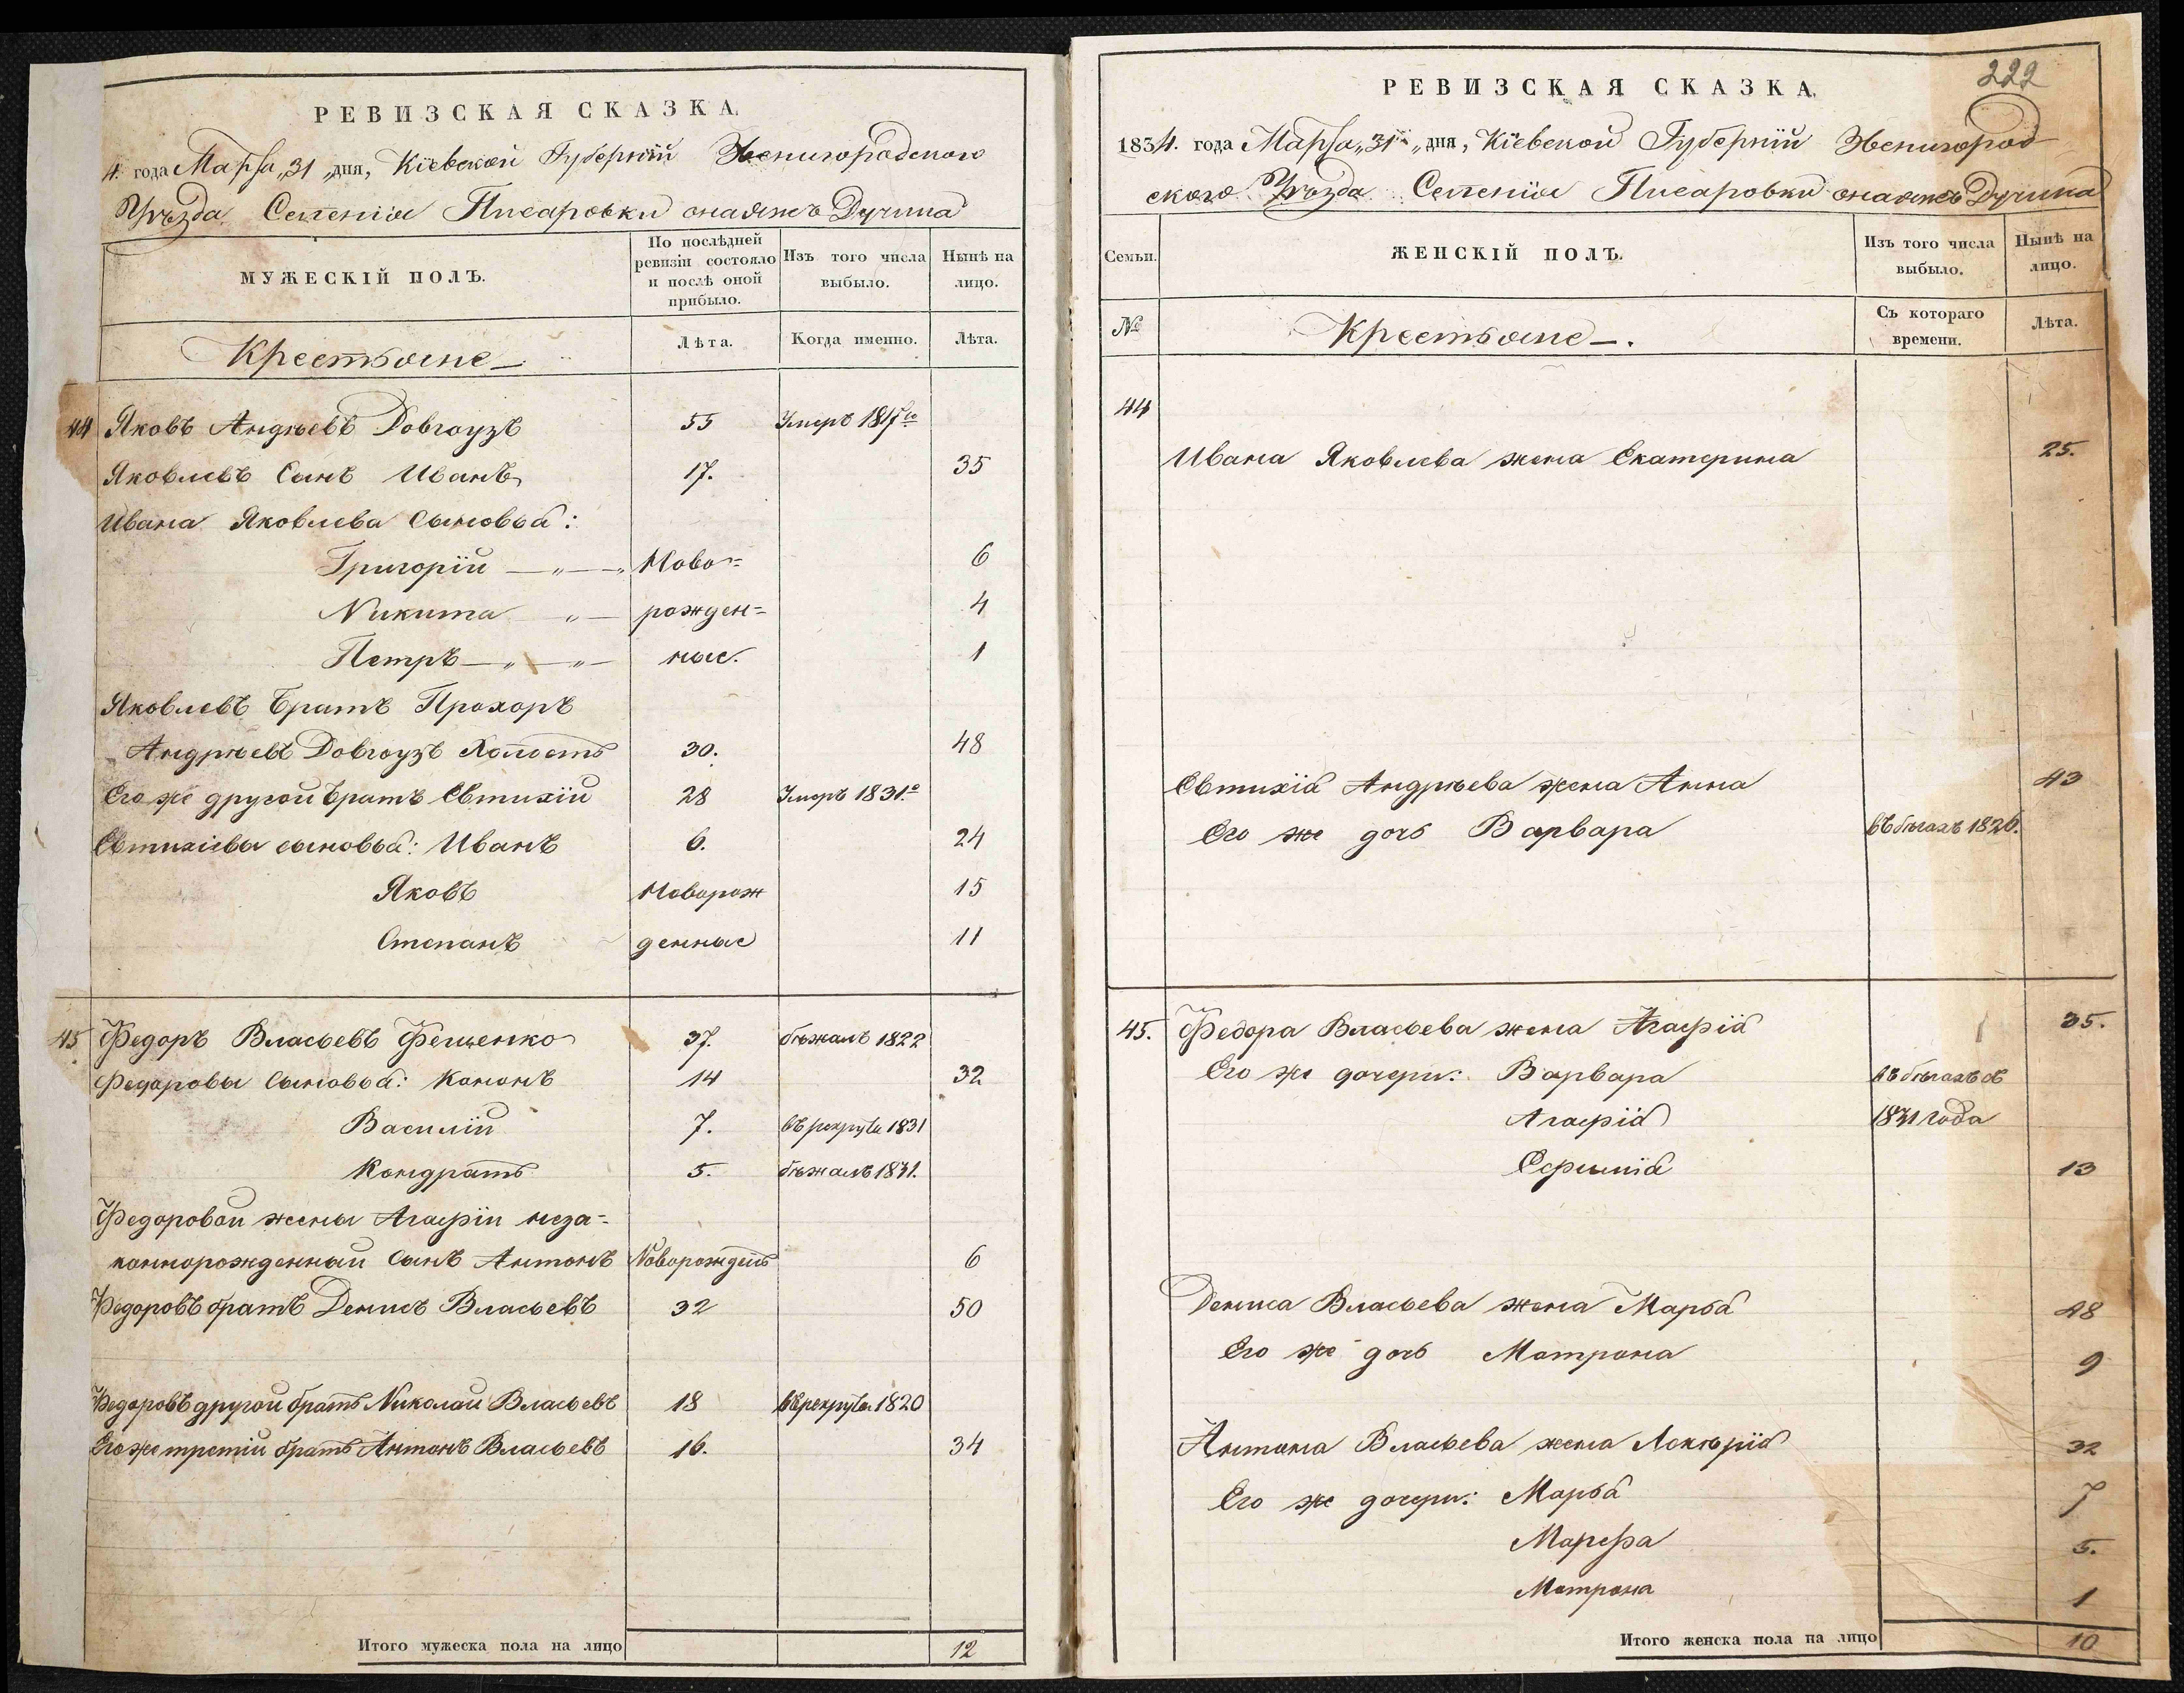 РЕВИЗСКАЯ СКАЗКА.
4. года Марта „31 „дня, Кіевской Губерніи Звенигородского
Уѣзда Селенія Писаровки
МУЖЕСКІЙ ПОЛЪ.
По послѣдней ревизіи состояло и послѣ оной прибыло.
Изъ того числа выбыло.
Нынѣ на лицо.
Крестьяне
Лѣта.
Когда именно.
Лѣта.
44 Яковъ Андрѣевъ Довгоузъ 55 Умеръ 1817го
Яковлевъ Сынъ Иванъ 17. 35
Ивана Яковлева Сыновья:
Григорій Ново= 6
Никита рожден= 4
Петръ ные. 1
Яковлевъ Братъ Прохоръ
Андрѣевъ Довгоузъ Холостъ 30. 48
Его же другой Братъ Евтихій 28 Умеръ 1831го
Евтихіевы сыновья: Иванъ 6. 24
Яковъ Новорож 15
Степанъ денные 11
45 Федоръ Власьевъ Фещенко 37. бѣжалъ 1822
Федоровы Сыновья: Кононъ 14 32
Василій 7. въ рекруты 1831
Кондратъ 5. бѣжалъ 1831.
Федоровой жены Агафіи неза=
коннорожденный Сынъ Антонъ Новорожденъ 6
Федоровъ братъ Денисъ Власьевъ 32 50
Федоровъ другой братъ Николай Власьевъ 18 въ рекруты 1820
Его же третій братъ Антонъ Власьевъ 16. 34
Итого мужеска пола на лицо 12
222
РЕВИЗСКАЯ СКАЗКА.
1834. года Марта „31го „дня, Кіевской Губерніи Звенигород
ского Уѣзда Селенія Писаровки
Семьи.
ЖЕНСКІЙ ПОЛЪ.
Изъ того числа выбыло.
Нынѣ на лицо.
№
Крестьяне.
Съ котораго времени.
Лѣта.
44
Ивана Яковлева жена Екатерина 25.
Евтихія Андрѣева жена Анна 43
Его же дочь Варвара въ бѣгахъ 1826.
45. Федора Власьева жена Агафія 35.
Его же дочери: Варвара въ бѣгахъ съ
Агафія 1831 года
Ефимія 13
Дениса Власьева жена Марья 48
Его же дочь Матрона 9
Антона Власьева жена Локѣрія 32
Его же дочери: Марья 7
Марфа 5.
Матрона 1
Итого женска пола на лицо 10